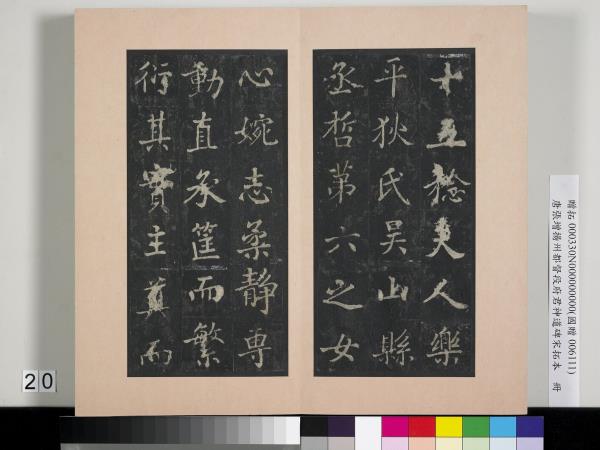 十五稔夫人樂
平狄氏吴山縣
丞哲第六之女
心婉志柔靜專
動直承筐而繁
衍其實主奠而
贈拓 000330N000000000(國贈 006111)
唐張增揚州都督段府君神道碑宋拓本 冊
20